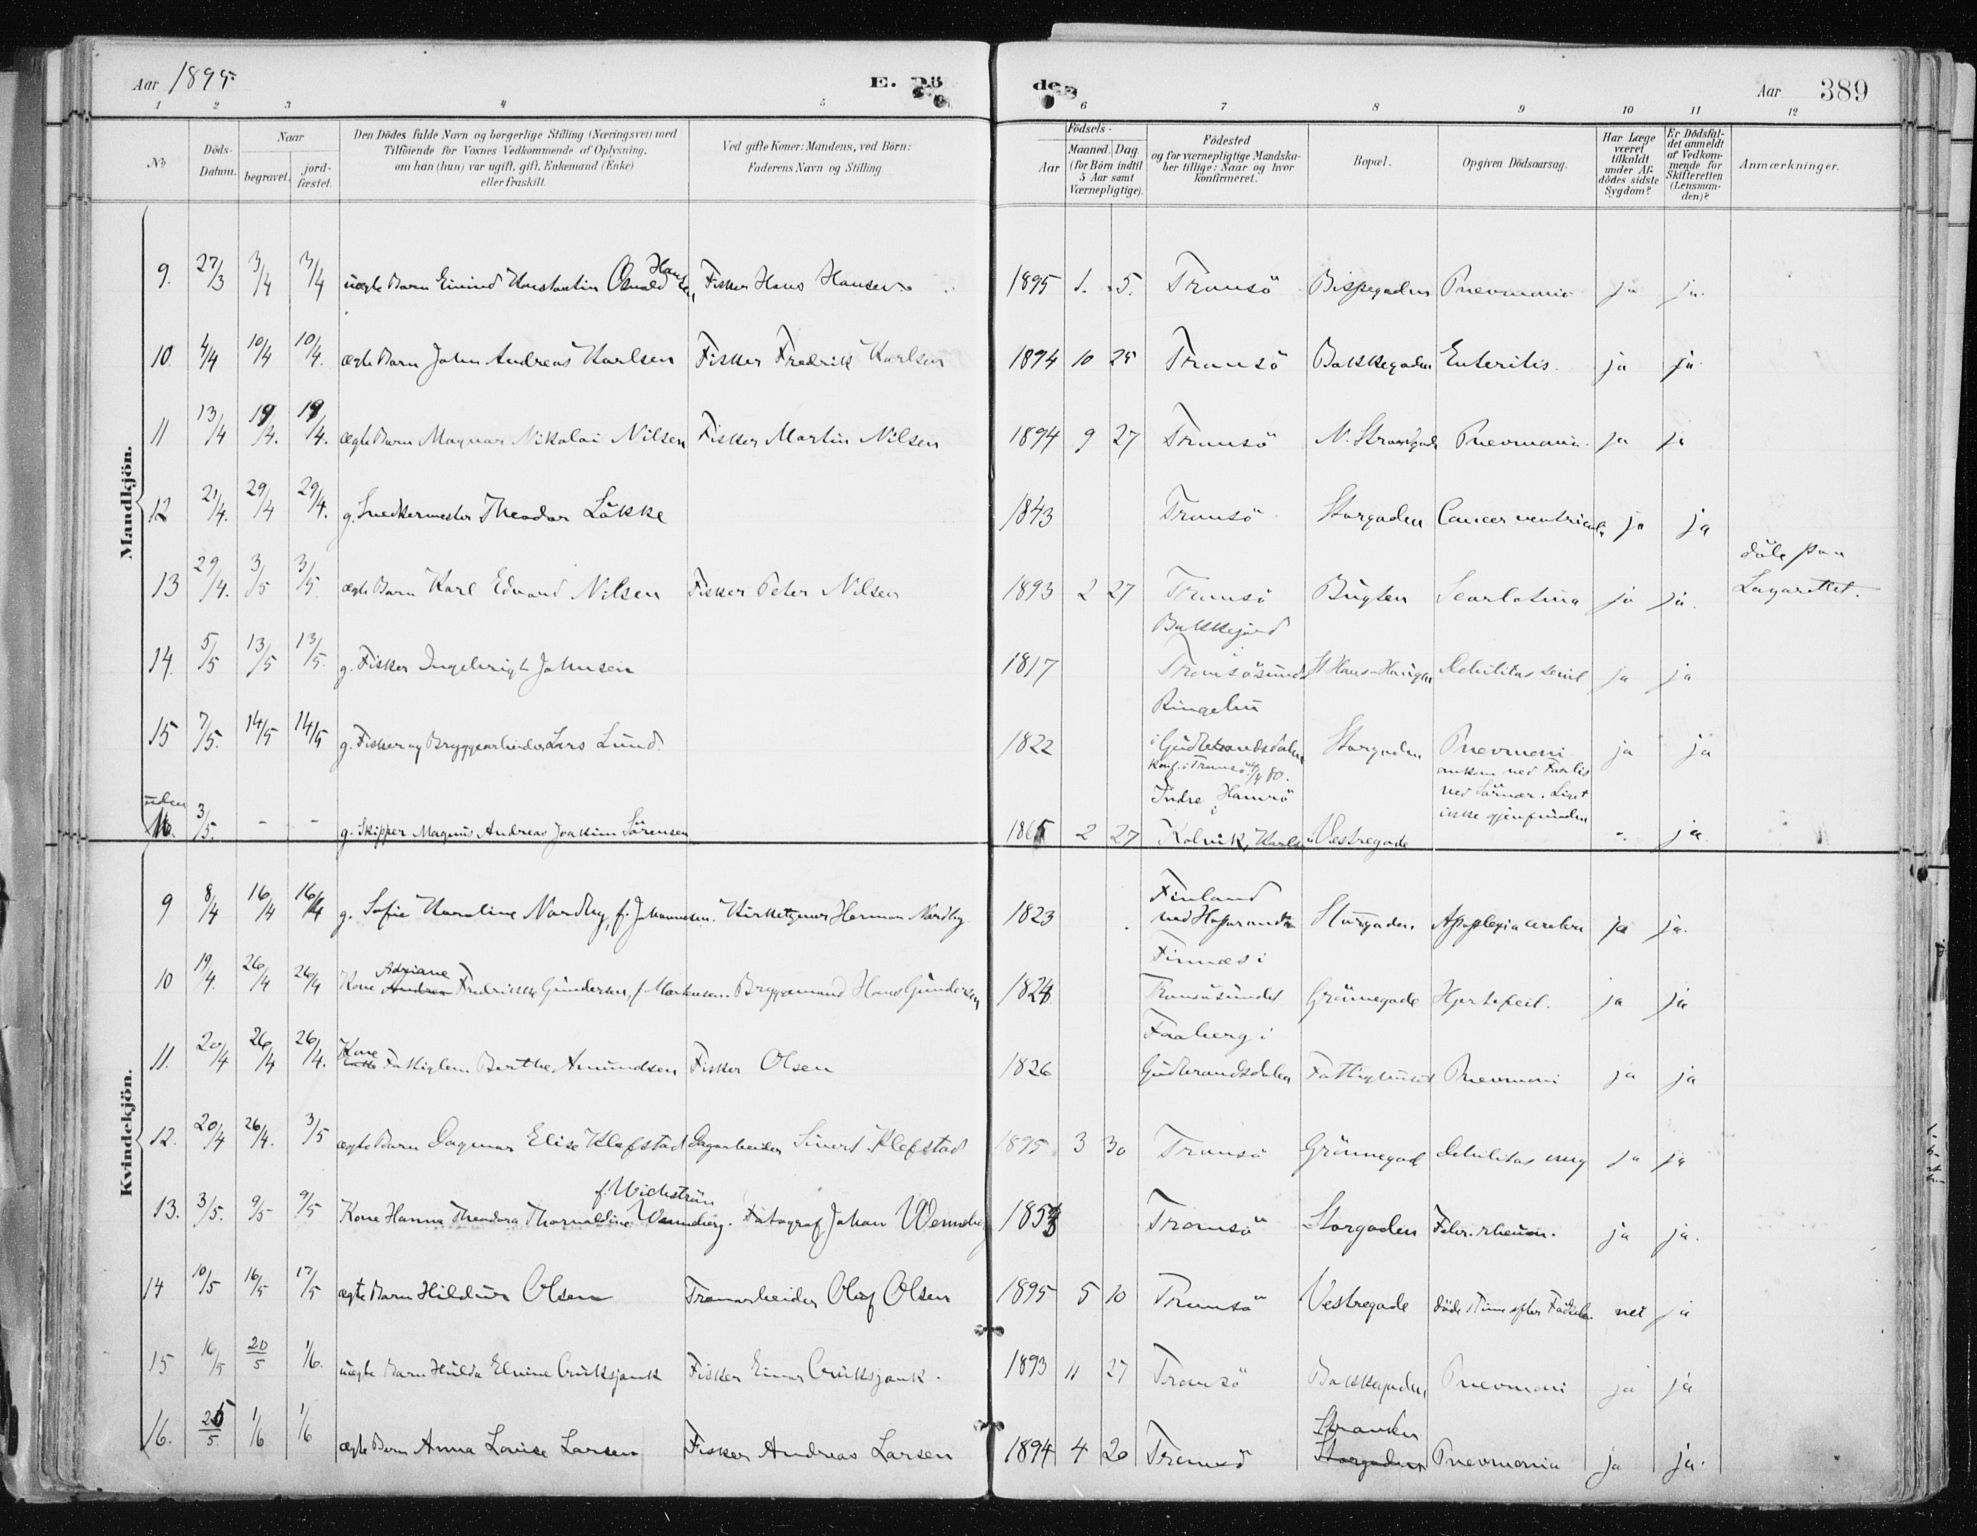 Aar 1895.
E. Dö
de.
Aar
389
1 2 3 4 5 6 7 8 9 10 11 12
No
Döds-
Datum.
Naar
begravet.
jord-
fæstet.
Den Dödes fulde Navn og borgerlige Stilling (Næringsvei) med
Tilföiende for Voxnes Vedkommende af Oplysning,
om han (hun) var ugift, gift, Enkemand (Enke)
eller fraskilt.
Ved gifte Koner: Mandens, ved Börn:
Faderens Navn og Stilling
Födsels-
Aar
Maaned.
Dag
(for Börn indtil
5 Aar samt
Værnepligtige).
Födested
og for værnepligtige Mandska-
ber tillige: Naar og hvor
konfirmeret.
Bopæl.
Opgiven Dödsaarsag.
Har Læge
været
tilkaldt
under Af-
dödes sidste
Sygdom?
Er Dödsfal-
det anmeldt
af Vedkom-
mende for
Skifteretten
(Lensman-
den)?
Anmærkninger.
Mandkjön.
9. 27/3 3/4 3/4 uægte Barn Eivind Konstantin Osvald Hansen, Fisker Hans Hansen 1895 1. 5. Tromsö Bispegaden Pnevmonia ja ja.
10. 4/4 10/4 10/4. ægte Barn John Andreas Karlsen Fisker Fredrik Karlsen 1894 10 25 Tromsö Bakkegaden Enteritis. ja ja.
11 13/4 19/4. 19/4. ægte Barn Magnus Nikolai Nilsen Fisker Martin Nilsen 1894 9 27 Tromsö N. Strandgade Pnevmonia. ja ja
12 21/4. 29/4 29/4. g. Snedkermester Theodor Lökke 1843 Tromsö Storgaden Cancer ventriculi ja ja
13 29/4. 3/5 3/5. ægte Barn Karl Edvard Nilsen Fisker Peter Nilsen 1893 2 27 Tromsö Bugten Scarlatina ja ja. döde paa
Lazarettet.
14. 5/5 13/5 13/5. g. Fisker Ingebrigt Johnsen 1817 Bakkejord
Tromsösund St Hans-Haugen Debilitas senil ja ja
15 7/5. 14/5 14/5 g. Fisker og Bryggearbeider Lars Lund. 1822 Ringebu
i Gudbrandsdalen Storgaden Pnevmoni ja ja
uden
No. 3/5. - - g. Skipper Magnus Andreas Joakim Sörensen 1865 2 27 Konf. i Tromsö 80.
Indre Hamnö
i
Kolvik, Karlsö Vestregade ankom med
ikke gjenfunden - ja
Kvindekjön.
9 8/4 16/4 16/4 g. Sofie Karoline Nordby, f. Johannesen. Kirketjener Herman Nordby 1823 Finland
ved Haparanda Storgaden. Apoplexia cerebri ja ja.
10 19/4. 26/4 26/4 Kone Adriane Fredrikke Gundersen, f. Martensen. Bryggemand Hans Gundersen 1824 Finnæs i
Tromsösundet Grönnegade Hjertefeil. ja ja
11. 20/4 26/4 26/4. Kone Fattiglem Berthe Amundsen Fisker Olsen 1826 Faaberg i
Gudbrandsdalen Fattighuset Pnevmoni ja ja
12. 20/4 26/4. 3/5 ægte Barn Dagmar Elise Klefstad Dagarbeider Sivert Klefstad 1895 3 30 Tromsö Grönnegad Debilitas cong ja ja
13. 3/5. 9/5 9/5 Kone Hanna Theodora Thorvaldine Wenneberg. f. Wickström Fotograf Johan Wenneberg 1853 Tromsö Storgaden Febr. rheum. ja ja.
14 10/5 16/5 17/5 ægte Barn Hildur Olsen Tranarbeider Oluf Olsen 1895 5 10 Tromsö Vestregade döde 1 Time efter Födselen nei ja
15 16/5 20/5 1/6. uægte Barn Hulda Elvine Fisker Einar 1893 11 27 Tromsö Bakkegaden, Pnevmoni ja ja
16. 25/5 1/6 1/6 ægte Barn Anna Lovise Larsen Fisker Andreas Larsen 1894 4 20 Tromsö Stranden
Storgaden Pnevmonia ja ja.